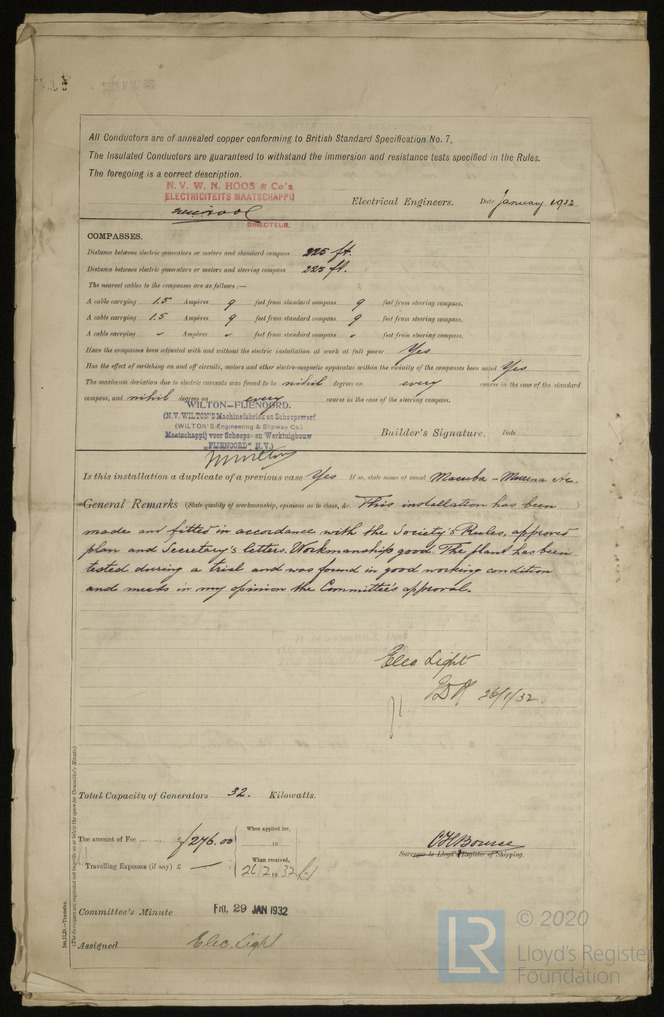 All Conductors are of annealed copper conforming to British Standard Specification No. 7.
The Insulated Conductors are guaranteed to withstand the immersion and resistance tests specified in the Rules.
The foregoing is a correct description.
N. V. W. N. HOOS & Co's
ELECTRICITEITS MAATSCHAPPIJ
Electrical Engineers. Date January 1932
DIRECTEUR.
COMPASSES.
Distance between electric generators or motors and standard compass 225 ft.
Distance between electric generators or motors and steering compass 225 ft.
The nearest cables to the compasses are as follows:—
A cable carrying 1.5 Ampères 9 feet from standard compass 9 feet from steering compass.
A cable carrying 1.5 Ampères 9 feet from standard compass 9 feet from steering compass.
A cable carrying " Ampères " feet from standard compass " feet from steering compass.
Have the compasses been adjusted with and without the electric installation at work at full power Yes
Has the effect of switching on and off circuits, motors and other electro-magnetic apparatus within the vicinity of the compasses been noted Yes
The maximum deviation due to electric currents was found to be nihil degrees on every course in the case of the standard
compass, and nihil degrees on every course in the case of the steering compass.
WILTON-FIJENOORD.
(N.V. WILTON'S Machinefabriek en Scheepswerf
(WILTON'S Engineering & Slipway Co.)
Maatschappij voor Scheeps- en Werktuigbouw
"FIJENOORD" N.V.)
Builder's Signature. Date
Is this installation a duplicate of a previous case Yes If so, state name of vessel Macuba - Murena &c.
General Remarks (State quality of workmanship, opinions as to class, &c. This installation has been
made and fitted in accordance with the Society's Rules, approved
plan and Secretary's letters. Workmanship good. The plant has been
tested during a trial and was found in good working condition
and meets in my opinion the Committee's approval.
Elec Light
26/1/32.
Total Capacity of Generators 32. Kilowatts.
The amount of Fee ... ... £ f276.00
When applied for,
19
Travelling Expenses (if any) £ —
When received,
26.2.1932
C H Bourse
Surveyor to Lloyd's Register of Shipping.
Committee's Minute FRI. 29 JAN 1932
Assigned Elec. Light
(The Surveyors are requested not to write on or below the space for Committee's Minute.)
© 2020
LR
Lloyd's Register
Foundation